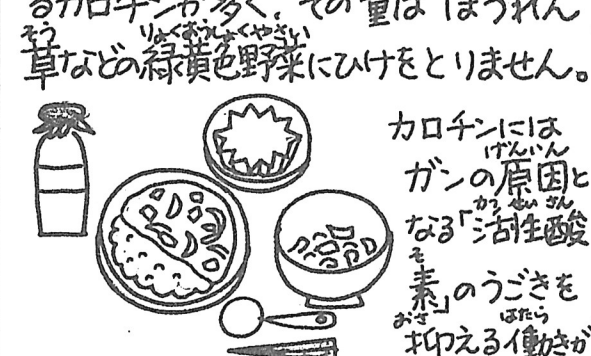 るカロチンが多く、その量はほうれん
草などの緑黄色野菜にひけをとりません。
カロチンには
ガンの原因と
なる「活性酸
素」のうごきを
抑える働きが